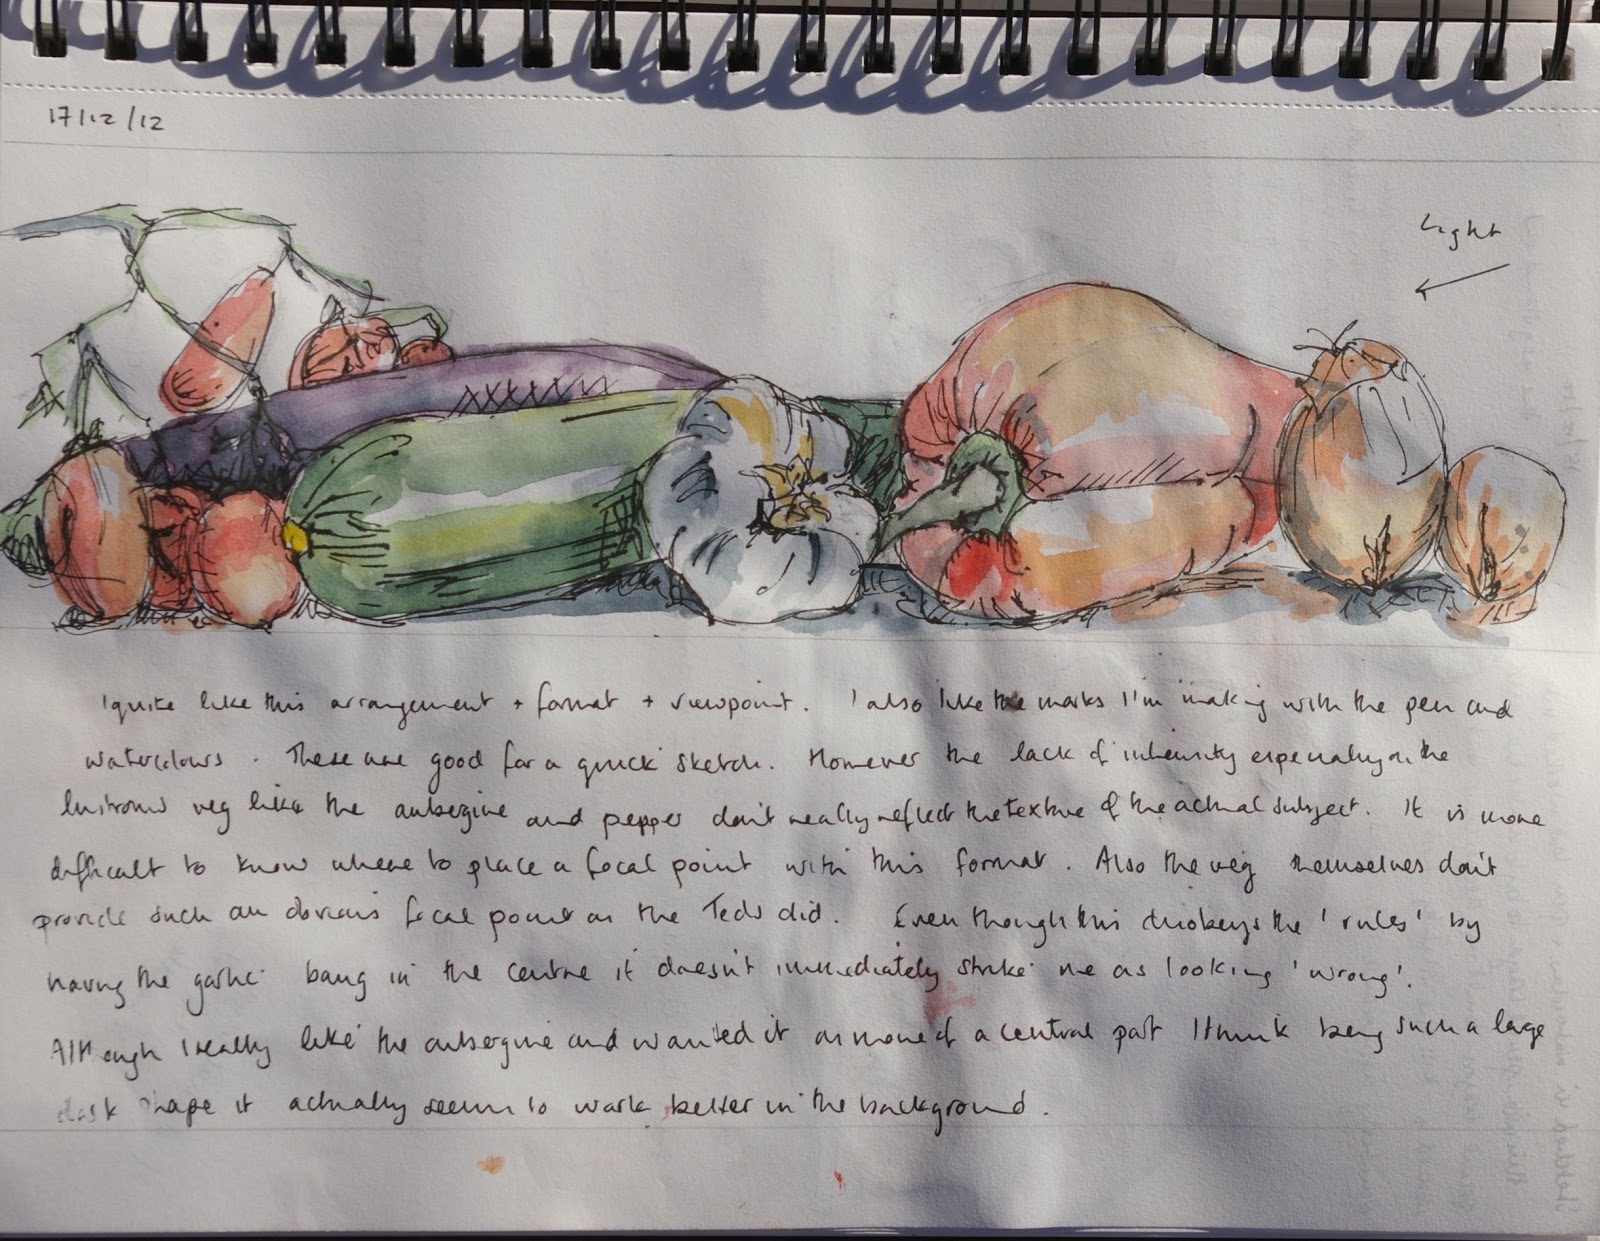 17/12/12
Light
I quite like this arrangement + format + viewpoint. I also like the marks I'm making with the pen and
watercolours. These are good for a quick sketch. However the lack of intensity especially on the
lustrous veg like the aubergine and pepper don't really reflect the texture of the actual subject. It is more
difficult to know where to place a focal point with this format. Also the veg themselves don't
provide such an obvious focal point as the Teds did. Even though this disobeys the 'rules' by
having the garlic bang in the centre it doesn't immediately strike me as looking 'wrong'.
Although I really like the aubergine and wanted it as more of a central part I think being such a large
dark shape it actually seems to work better in the background.